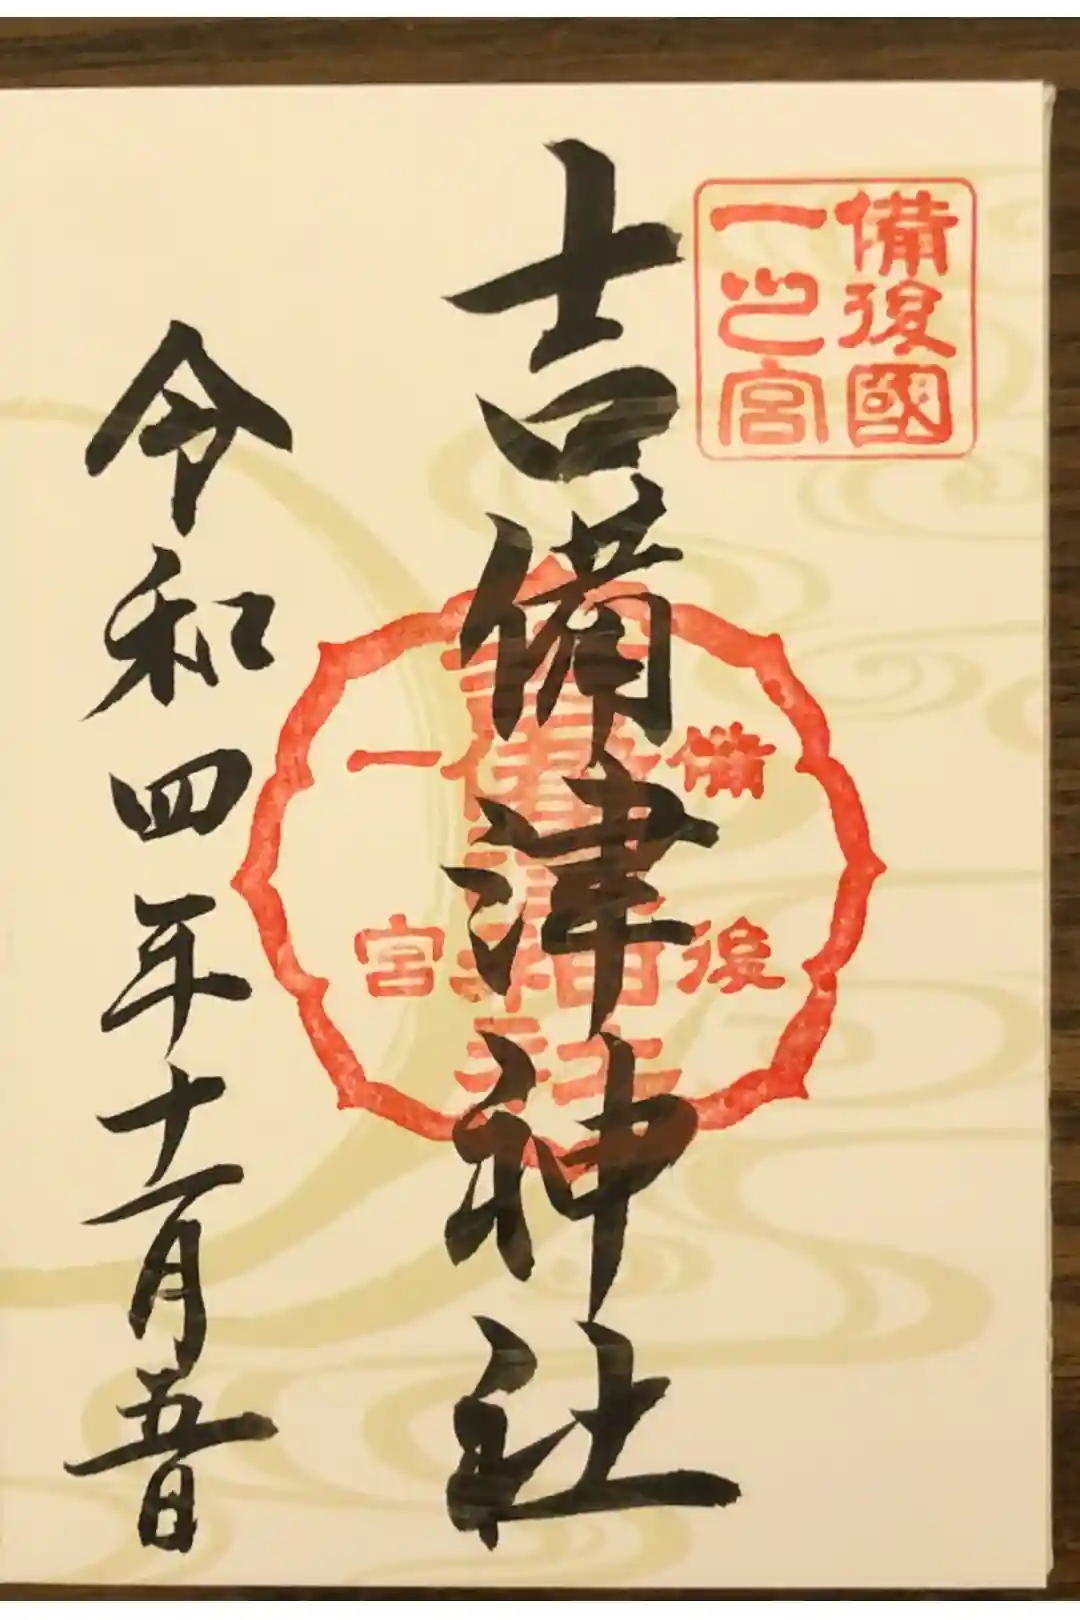 備後國
一之宮
吉備津神社
備後
一宮
令和四年十一月五日